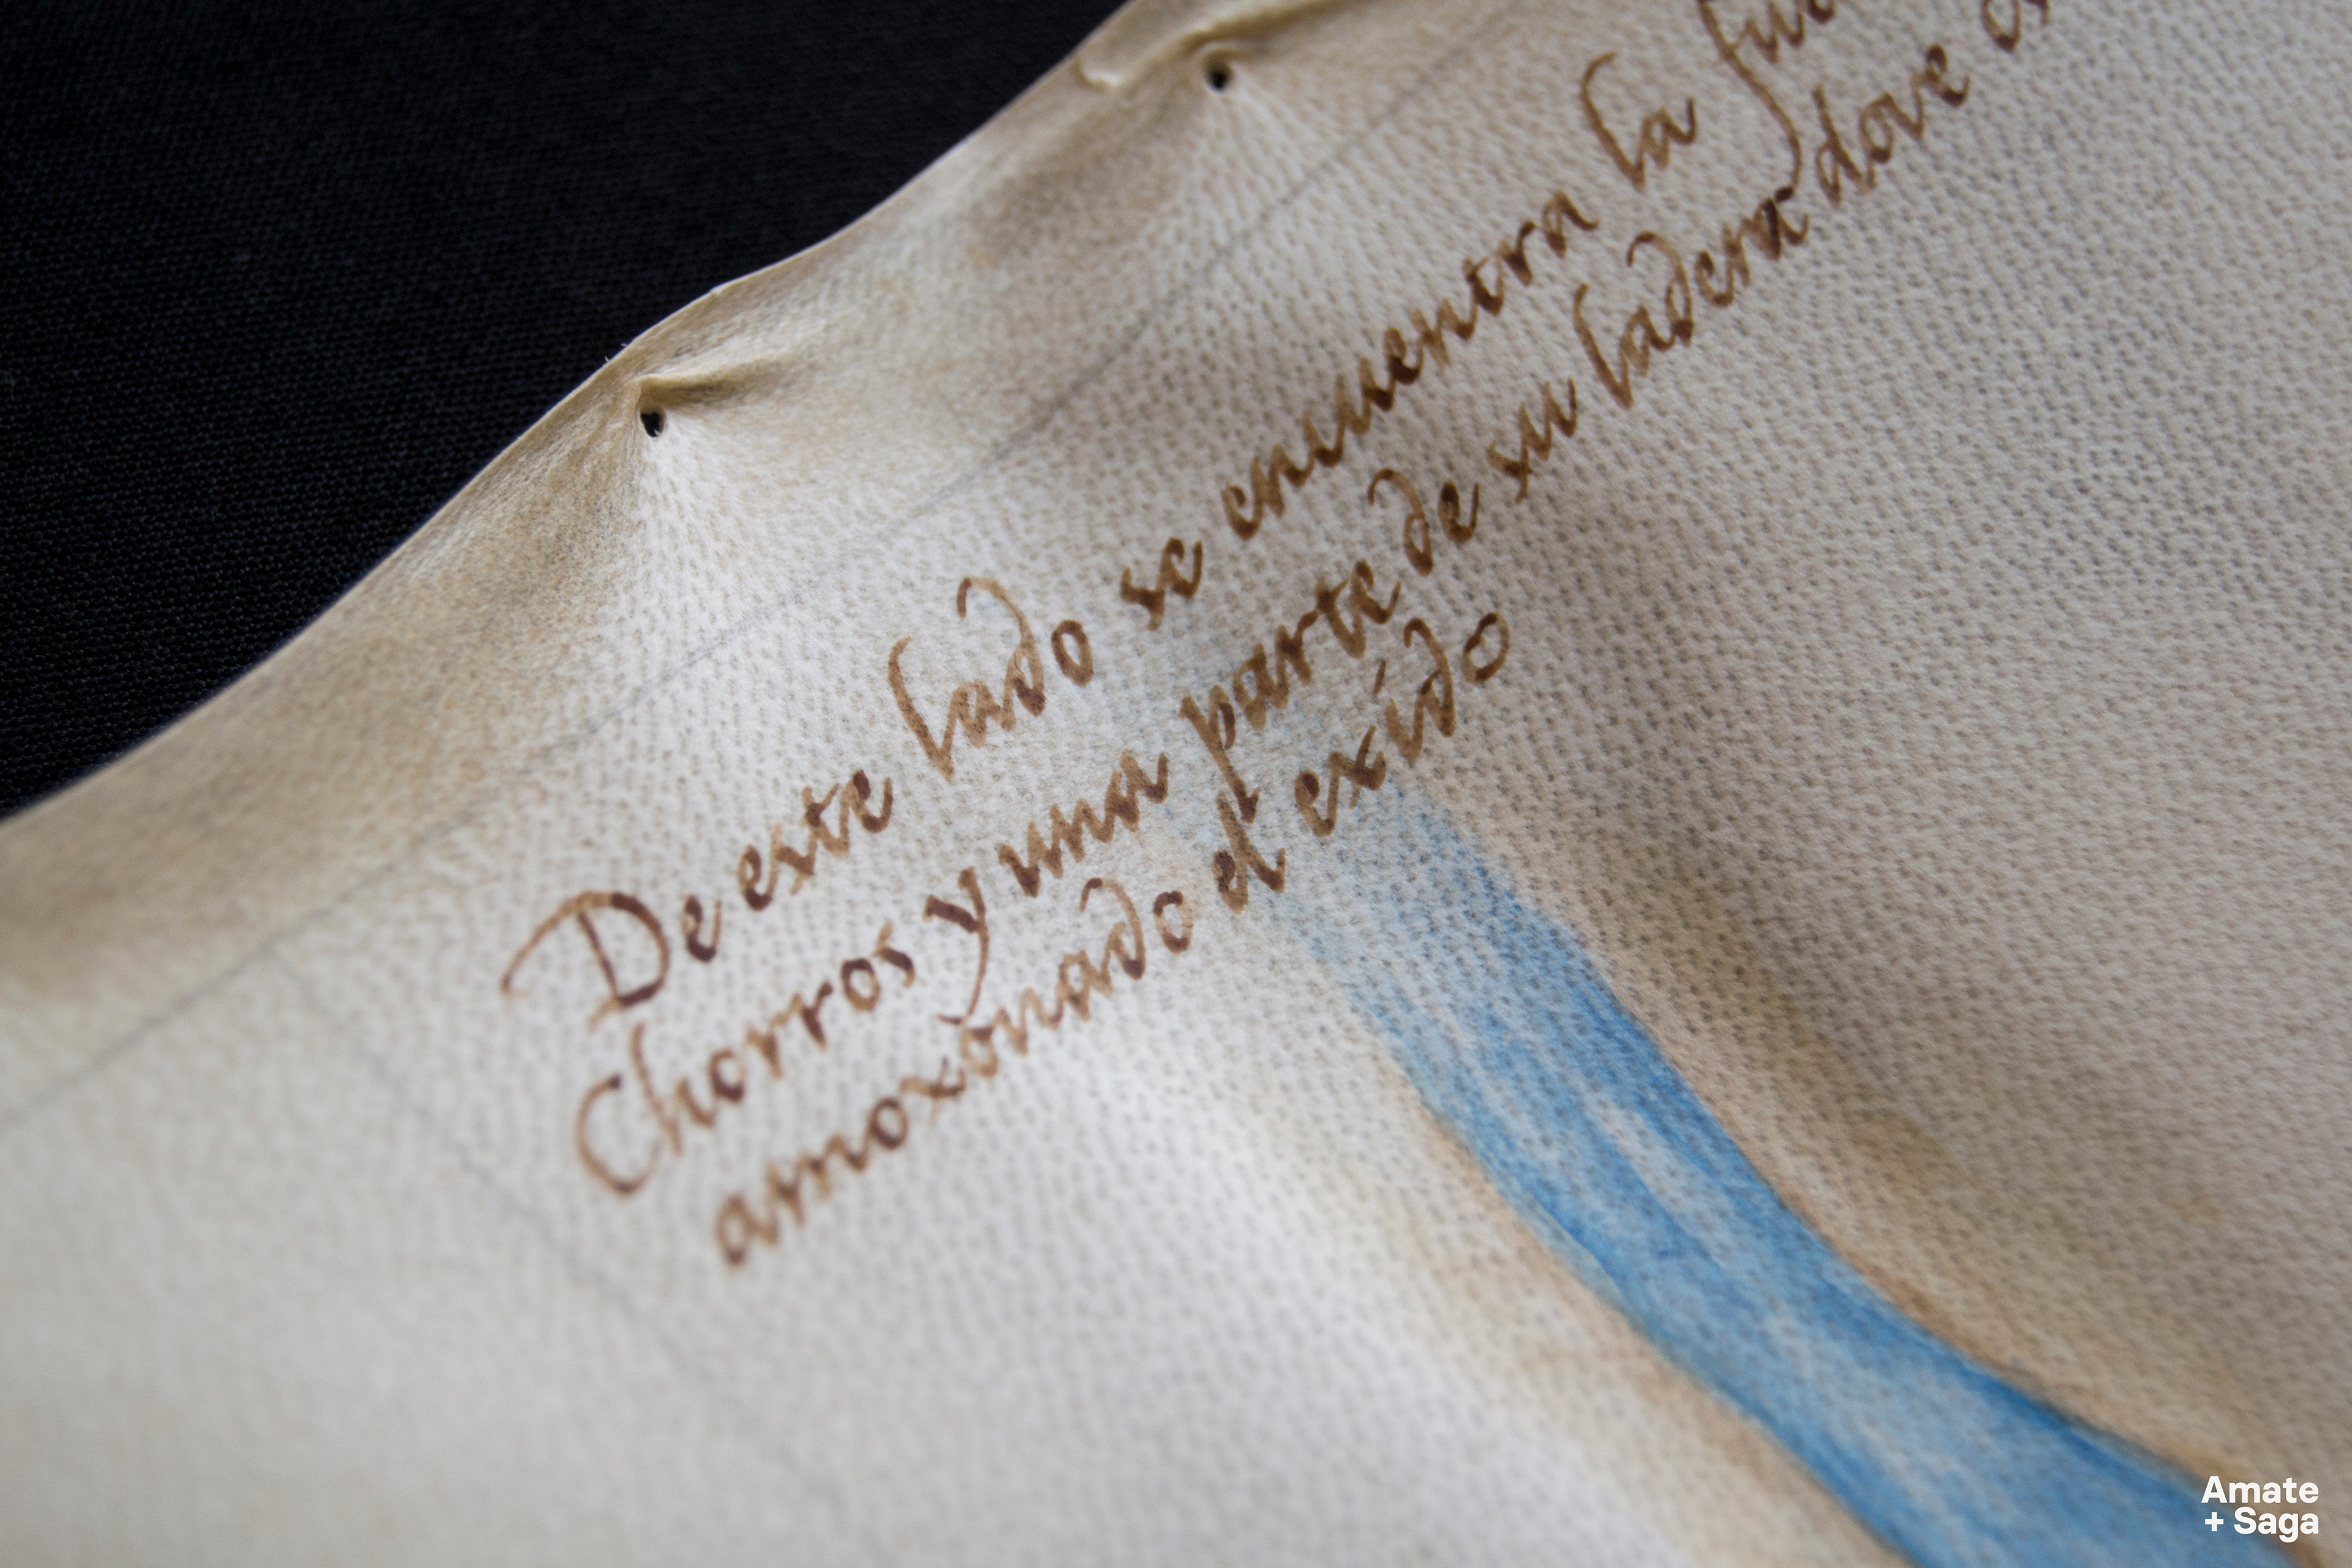 De este lado se encuentra la
Chorros y una parte de su ladera dove
amoxonado el exido
Amate
+ Saga